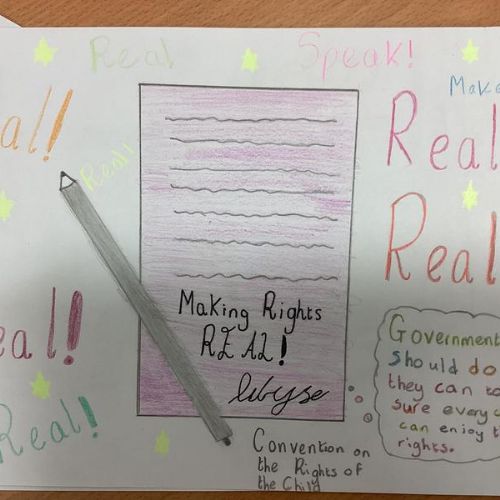 Real
Speak!
Make
al!
Real!
Real
Real
Making Rights
REAL!
eal!
Real!
Government
should do
they can to
sure every
can enjoy t
rights.
Convention on
the Rights of
the Child